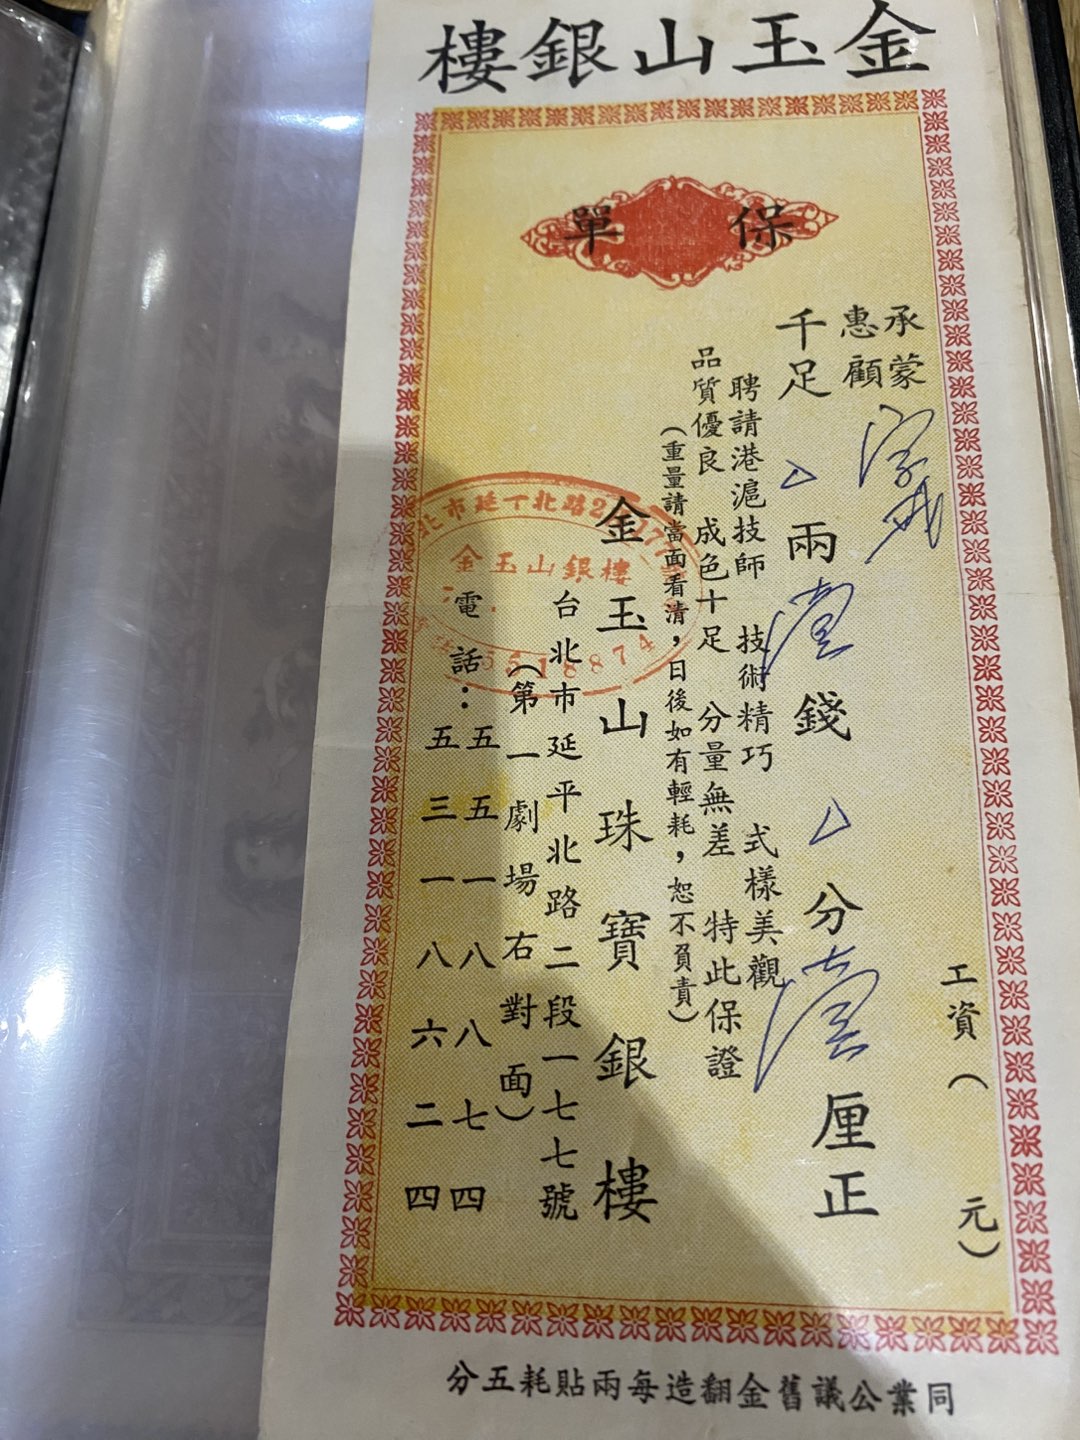 金玉山銀樓
保單
承蒙
惠顧
千足 兩壹錢 分壹厘正
工資( 元)
聘請港滬技師 技術精巧 式樣美觀
品質優良 成色十足 分量無差 特此保證
(重量請當面看清,日後如有輕耗,恕不負責)
金玉山珠寶銀樓
台北市延平北路二段一七七號
(第一劇場右對面)
電話:五五一八八七四
五三一八六二四
金玉山銀樓
5518874
同業公議舊金翻造每兩貼耗五分